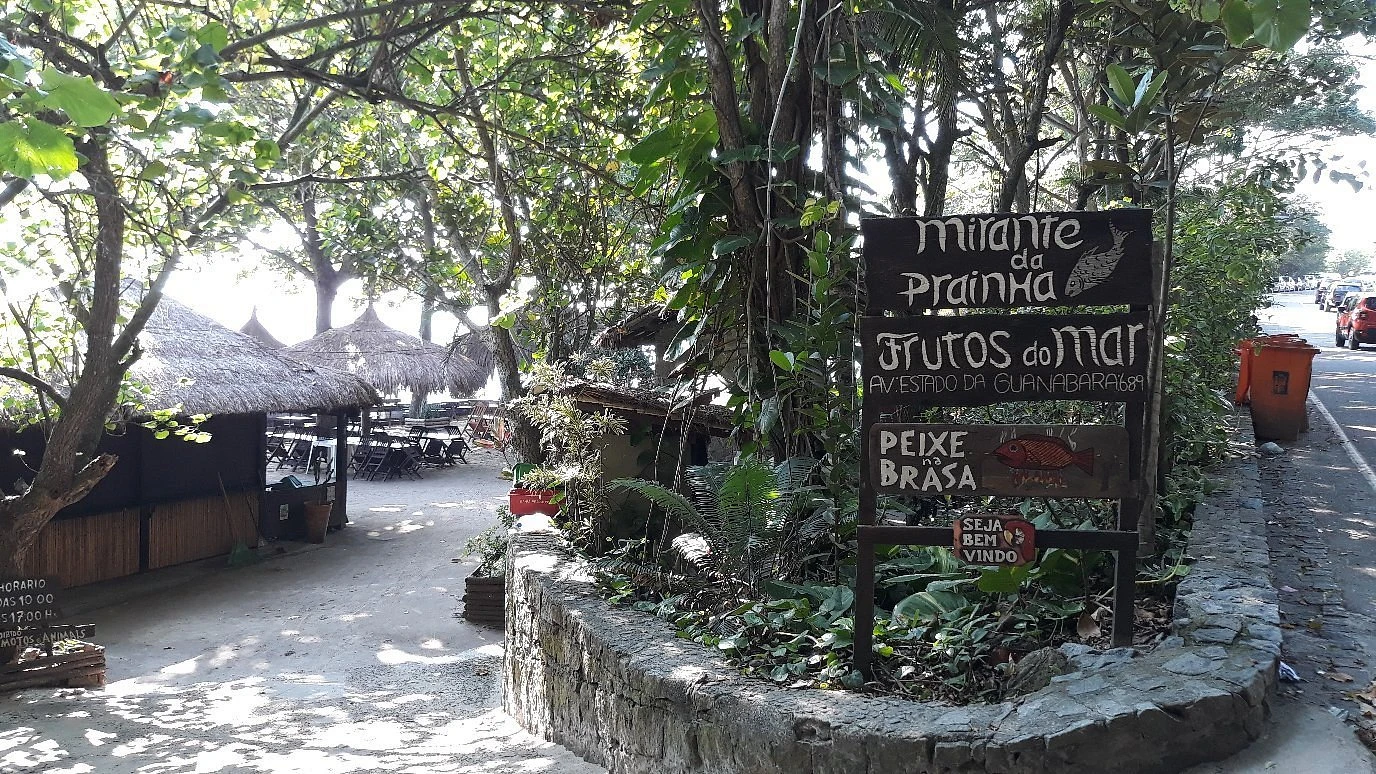 mirante
da
Prainha
Frutos do mar
AV. ESTADO DA GUANABARA 689
PEIXE
na
BRÂSA
SEJA
BEM
VINDO
HORARIO
DAS 10:00
ÀS 17:00 H
MOTOS & ANIMAIS